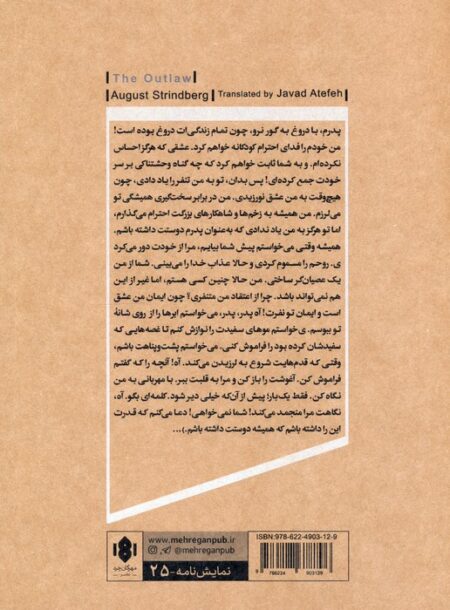 The Outlaw
August Strindberg Translated by Javad Atefeh
پدرم، با دروغ به گور نرو، چون تمام زندگی‌ات دروغ بوده است!
من خودم را فدای احترام کودکانه خواهم کرد. عشقی که هرگز احساس
نکرده‌ام. و به شما ثابت خواهم کرد که چه گناه وحشتناکی بر سر
خودت جمع کرده‌ای! پس بدان، تو به من تنفر را یاد دادی، چون
هیچ‌وقت به من عشق نورزیدی. من در برابر سخت‌گیری همیشگی تو
می‌لرزم. من همیشه به زخم‌ها و شاهکارهای بزرگت احترام می‌گذارم،
اما تو هرگز به من یاد ندادی که به‌عنوان پدرم دوستت داشته باشم.
همیشه وقتی می‌خواستم پیش شما بیایم، مرا از خودت دور می‌کرد
ی. روحم را مسموم کردی و حالا عذاب خدا را می‌بینی. شما از من
یک عصیان‌گر ساختی. من حالا چنین کسی هستم، اما غیر از این
هم نمی‌تواند باشد. چرا از اعتقاد من متنفری؟ چون ایمان من عشق
است و ایمان تو نفرت! آه پدر، پدر، می‌خواستم ابرها را از روی شانۀ
تو ببوسم. ی‌خواستم موهای سفیدت را نوازش کنم تا غصه‌هایی که
سفیدشان کرده بود را فراموش کنی. می‌خواستم پشت‌وپناهت باشم،
وقتی که قدم‌هایت شروع به لرزیدن می‌کند. آه! آنچه را که گفتم
فراموش کن. آغوشت را باز کن و مرا به قلبت ببر. با مهربانی به من
نگاه کن. فقط یک‌بار؛ پیش از آن‌که خیلی دیر شود. کلمه‌ای بگو. آه،
نگاهت مرا منجمد می‌کند! شما نمی‌خواهی! دعا می‌کنم که قدرت
این را داشته باشم که همیشه دوستت داشته باشم.)...
مهرگان خرد
www.mehreganpub.ir
@mehreganpub
نمایش‌نامه-۲۵
ISBN:978-622-4903-12-9
9 786224 903129